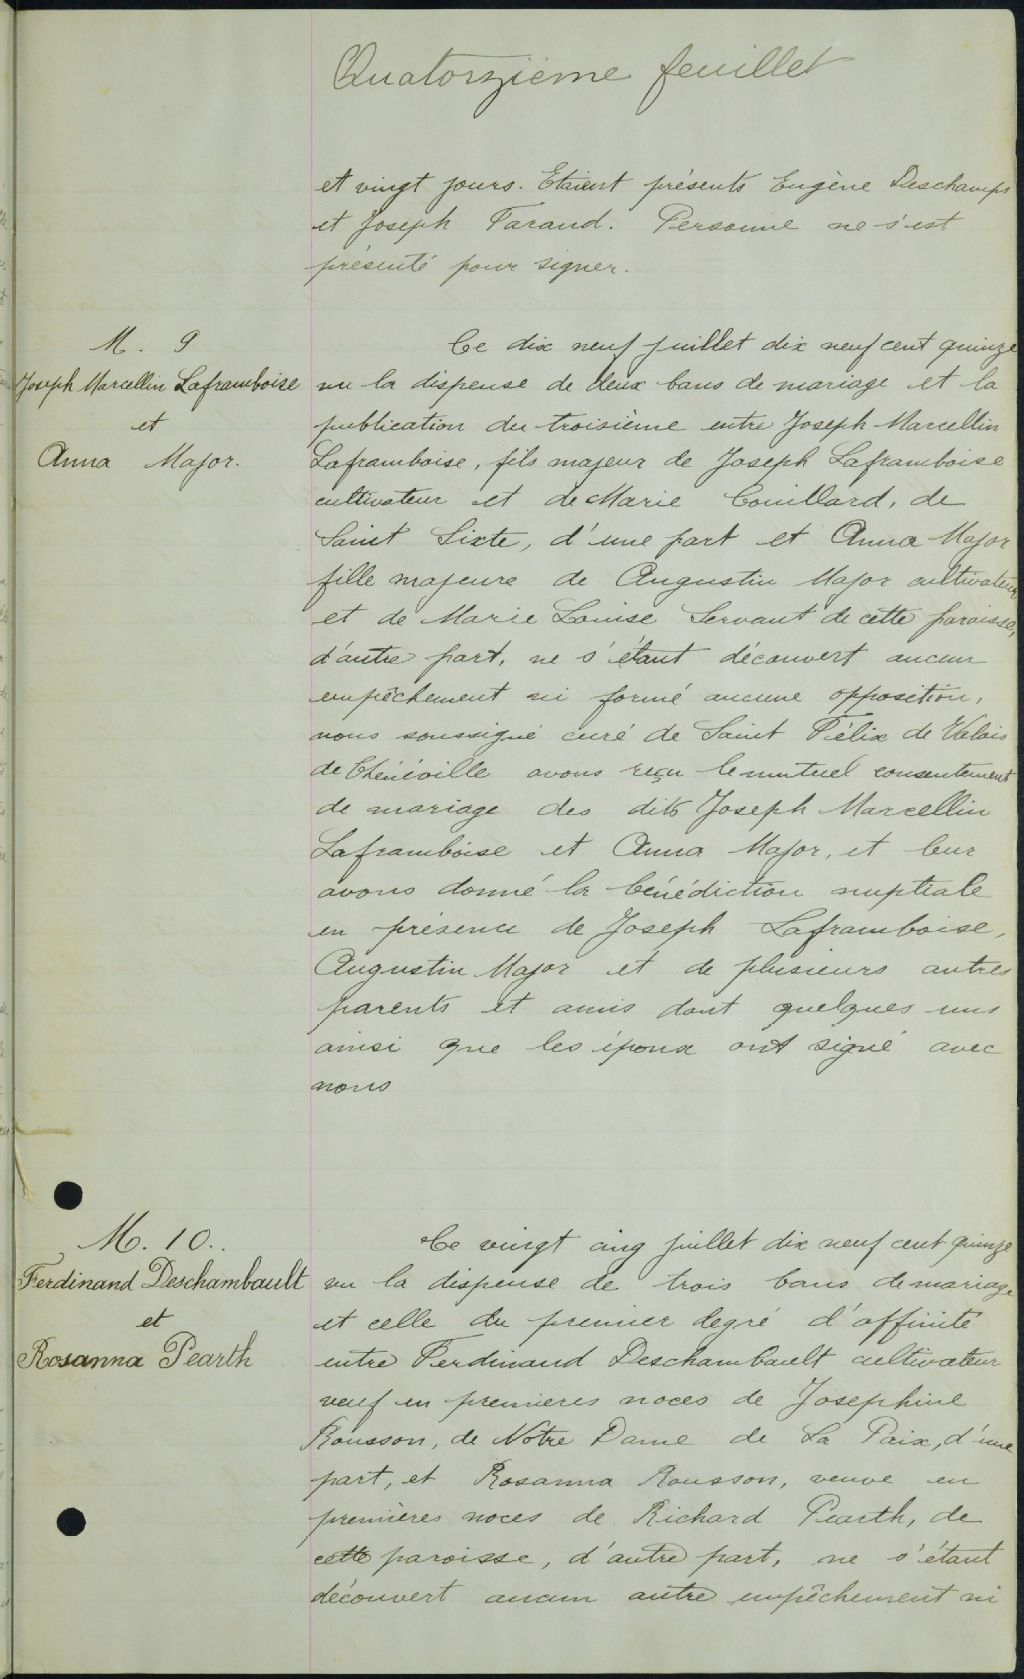 Quatorzième feuillet
et vingt jours. Etaient présents Eugène Deschamps
et Joseph Farand. Personne ne s'est
présenté pour signer.
M. 9
Joseph Marcellin Laframboise
et
Anna Major.
Ce dix neuf juillet dix neuf cent quinze
vu la dispense de deux bans de mariage et la
publication du troisième entre Joseph Marcellin
Laframboise, fils majeur de Joseph Laframboise
cultivateur et de Marie Couillard, de
Saint Sixte, d'une part et Anna Major
fille majeure de Augustin Major cultivateur
et de Marie Louise Servant de cette paroisse,
d'autre part, ne s'étant découvert aucun
empêchement ni formé aucune opposition,
nous soussigné curé de Saint Félix de Valois
de Chénéville avons reçu le mutuel consentement
de mariage des dits Joseph Marcellin
Laframboise et Anna Major, et leur
avons donné la bénédiction nuptiale
en présence de Joseph Laframboise,
Augustin Major et de plusieurs autres
parents et amis dont quelques uns
ainsi que les époux ont signé avec
nous
M. 10..
Ferdinand Deschambault
et
Rosanna Pearth
Ce vingt cinq juillet dix neuf cent quinze
vu la dispense de trois bans de mariage
et celle du premier degré d'affinité
entre Ferdinand Deschambault cultivateur
veuf en premieres noces de Josephine
Rousson, de Notre Dame de La Paix, d'une
part, et Rosanna Rousson, veuve en
premières noces de Richard Pearth, de
cette paroisse, d'autre part, ne s'étant
découvert aucun autre empêchement ni